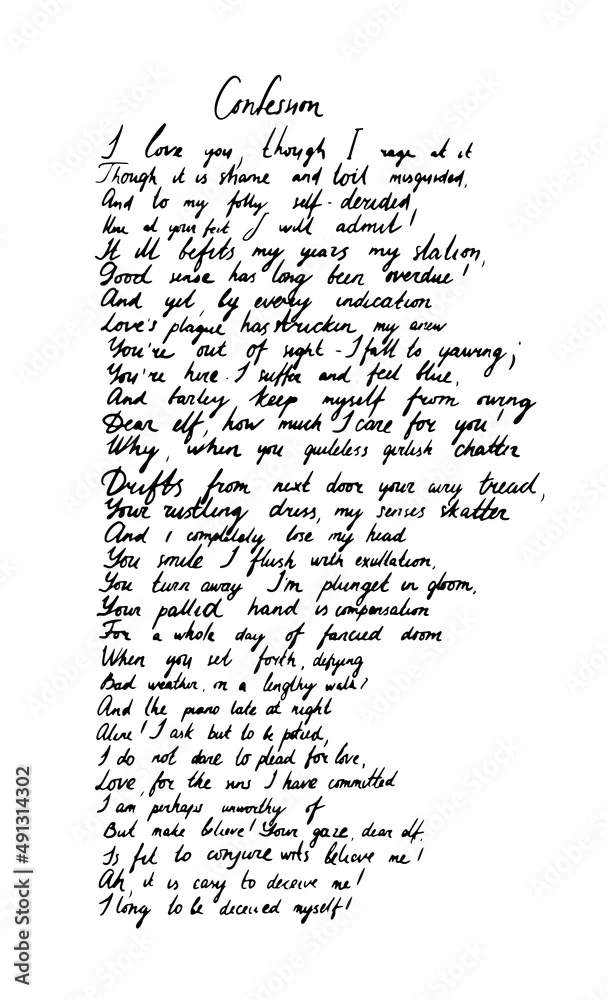 Confession
I love you, though I rage at it
Though it is shame and toil misguided,
And to my folly self-derided,
Here at your feet I will admit!
It ill befits my years my station,
Good sense has long been overdue!
And yet, by every indication
Love's plague has stricken my anew
You're out of sight - I fall to yawning;
You're here - I suffer and feel blue,
And barley keep myself from owing
Dear elf, how much I care for you!
Why, when you guileless girlish chatter
Drifts from next door your airy tread,
Your rustling dress, my senses skatter
And I completely lose my head
You smile I flush with exultation,
You turn away I'm plunget in gloom,
Your pallid hand is compensation
For a whole day of fancied doom
When you set forth, defying
Bad weather, on a lengthy walk?
And the piano late at night
Aline! I ask but to be pitied,
I do not dare to plead for love,
Love, for the sins I have committed
I am perhaps unworthy of
But make believe! Your gaze, dear elf,
Is fit to conjure with believe me!
Ah, it is easy to deceive me!
I long to be deceived myself!
Adobe Stock | #491314302